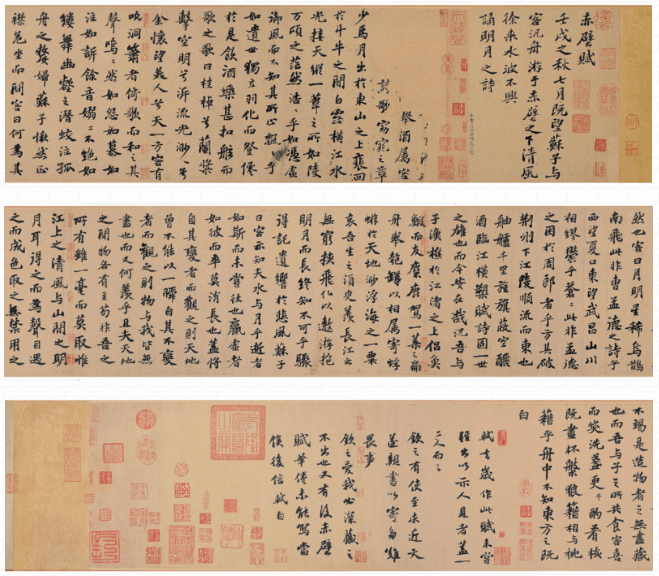 赤壁賦
壬戌之秋七月既望蘇子與
客泛舟游于赤壁之下清風
徐來水波不興
誦明月之詩
舉酒屬客
歌窈窕之章
少焉月出於東山之上裴回
於斗牛之間白露橫江水
光接天縱一葦之所如陵
萬頃之茫然浩浩乎如憑虛
御風而不知其所止飄飄乎
如遺世獨立羽化而登僊
於是飲酒樂甚扣舷而
歌之歌曰桂棹兮蘭槳
擊空明兮泝流光渺渺兮
余懷望美人兮天一方客有
吹洞簫者倚歌而和之其
聲嗚嗚然如怨如慕如
泣如訴餘音嫋嫋不絕如
縷舞幽壑之潛蛟泣孤
舟之嫠婦蘇子愀然正
襟危坐而問客曰何為其
然也客曰月明星稀烏鵲
南飛此非曹孟德之詩乎
西望夏口東望武昌山川
相繆鬱乎蒼蒼此非孟德
之困於周郎者乎方其破
荊州下江陵順流而東也
舳艫千里旌旗蔽空釃
酒臨江橫槊賦詩固一世
之雄也而今安在哉況吾與
子漁樵於江渚之上侶魚
鰕而友麋鹿駕一葉之扁
舟舉匏罇以相屬寄蜉
蝣於天地渺浮海之一粟
哀吾生之須臾羨長江之
無窮挾飛僊以遨遊抱
明月而長終知不可乎驟
得託遺響於悲風蘇子
曰客亦知夫水與月乎逝者
如斯而未嘗往也贏虛者
如彼而卒莫消長也蓋將
自其變者而觀之則天地
曾不能以一瞬自其不變
者而觀之則物與我皆無
盡也而又何羨乎且夫天地
之間物各有主苟非吾之
所有雖一毫而莫取惟
江上之清風與山間之明
月耳得之而為聲目遇
之而成色取之無禁用之
不竭是造物者之無盡藏
也而吾與子之所共食客喜
而笑洗盞更酌肴核
既盡杯盤狼藉相與枕
藉乎舟中不知東方之既
白
軾去歲作此賦未嘗
輕出以示人見者蓋一
二人而已
欽之有使至求近文
遂親書以寄多難
畏事
欽之愛我必深藏之
不出也又有後赤壁
賦筆倦未能寫當
俟後信軾白